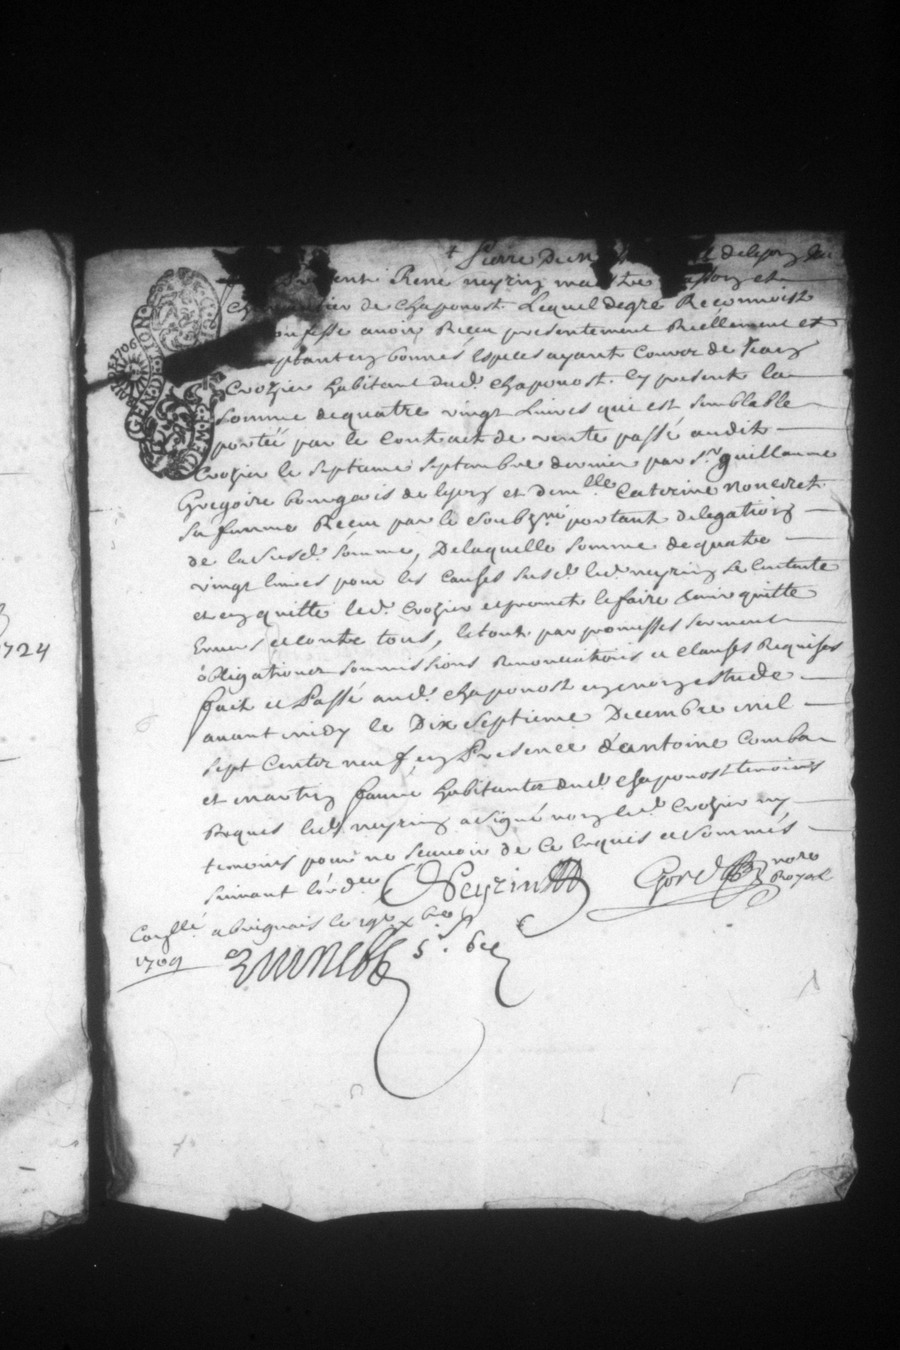 1706
GEN. DE LION
1724
Pierre de lyon
René neyrin maitre et
de chaponost Lequel de gre Reconnoist
avoir Receu presentement Reellement et
en bonnes especes ayant cours de Jean
Crozier habitant dud. chaponost cy present la
somme de quatre vingt Livres qui est semblable
portée par le Contract de vente passé audit
Crozier le septieme septembre dernier par sr. guillaume
Gregoire bourgois de lyon et demlle Caterine
sa femme Receu par le soubzne portant delegation
de la susd. somme, De laquelle somme de quatre
vingt livres pour les causes susd. led. neyrin se Contente
et en quitte led. Crozier et promet le faire tenir quitte
Envers et contre tous, le tout par promesses serment
obligations soumissions Renonciations et clauses Requises
fait et Passé aud. chaponost en mon estude
avant midy le Dix septieme Decembre mil
sept Centz neuf en Presence d'antoine Comba
et martin faure habitants dud. chaponost temoins
Requis led. neyrin a signé non led. Crozier ny
temoins pour ne scavoir de ce enquis et sommés
suivant l'ord.
Neyrin
nore
Royal
Conllé a brignais le 19e xbre
1709
5 s. 6 d